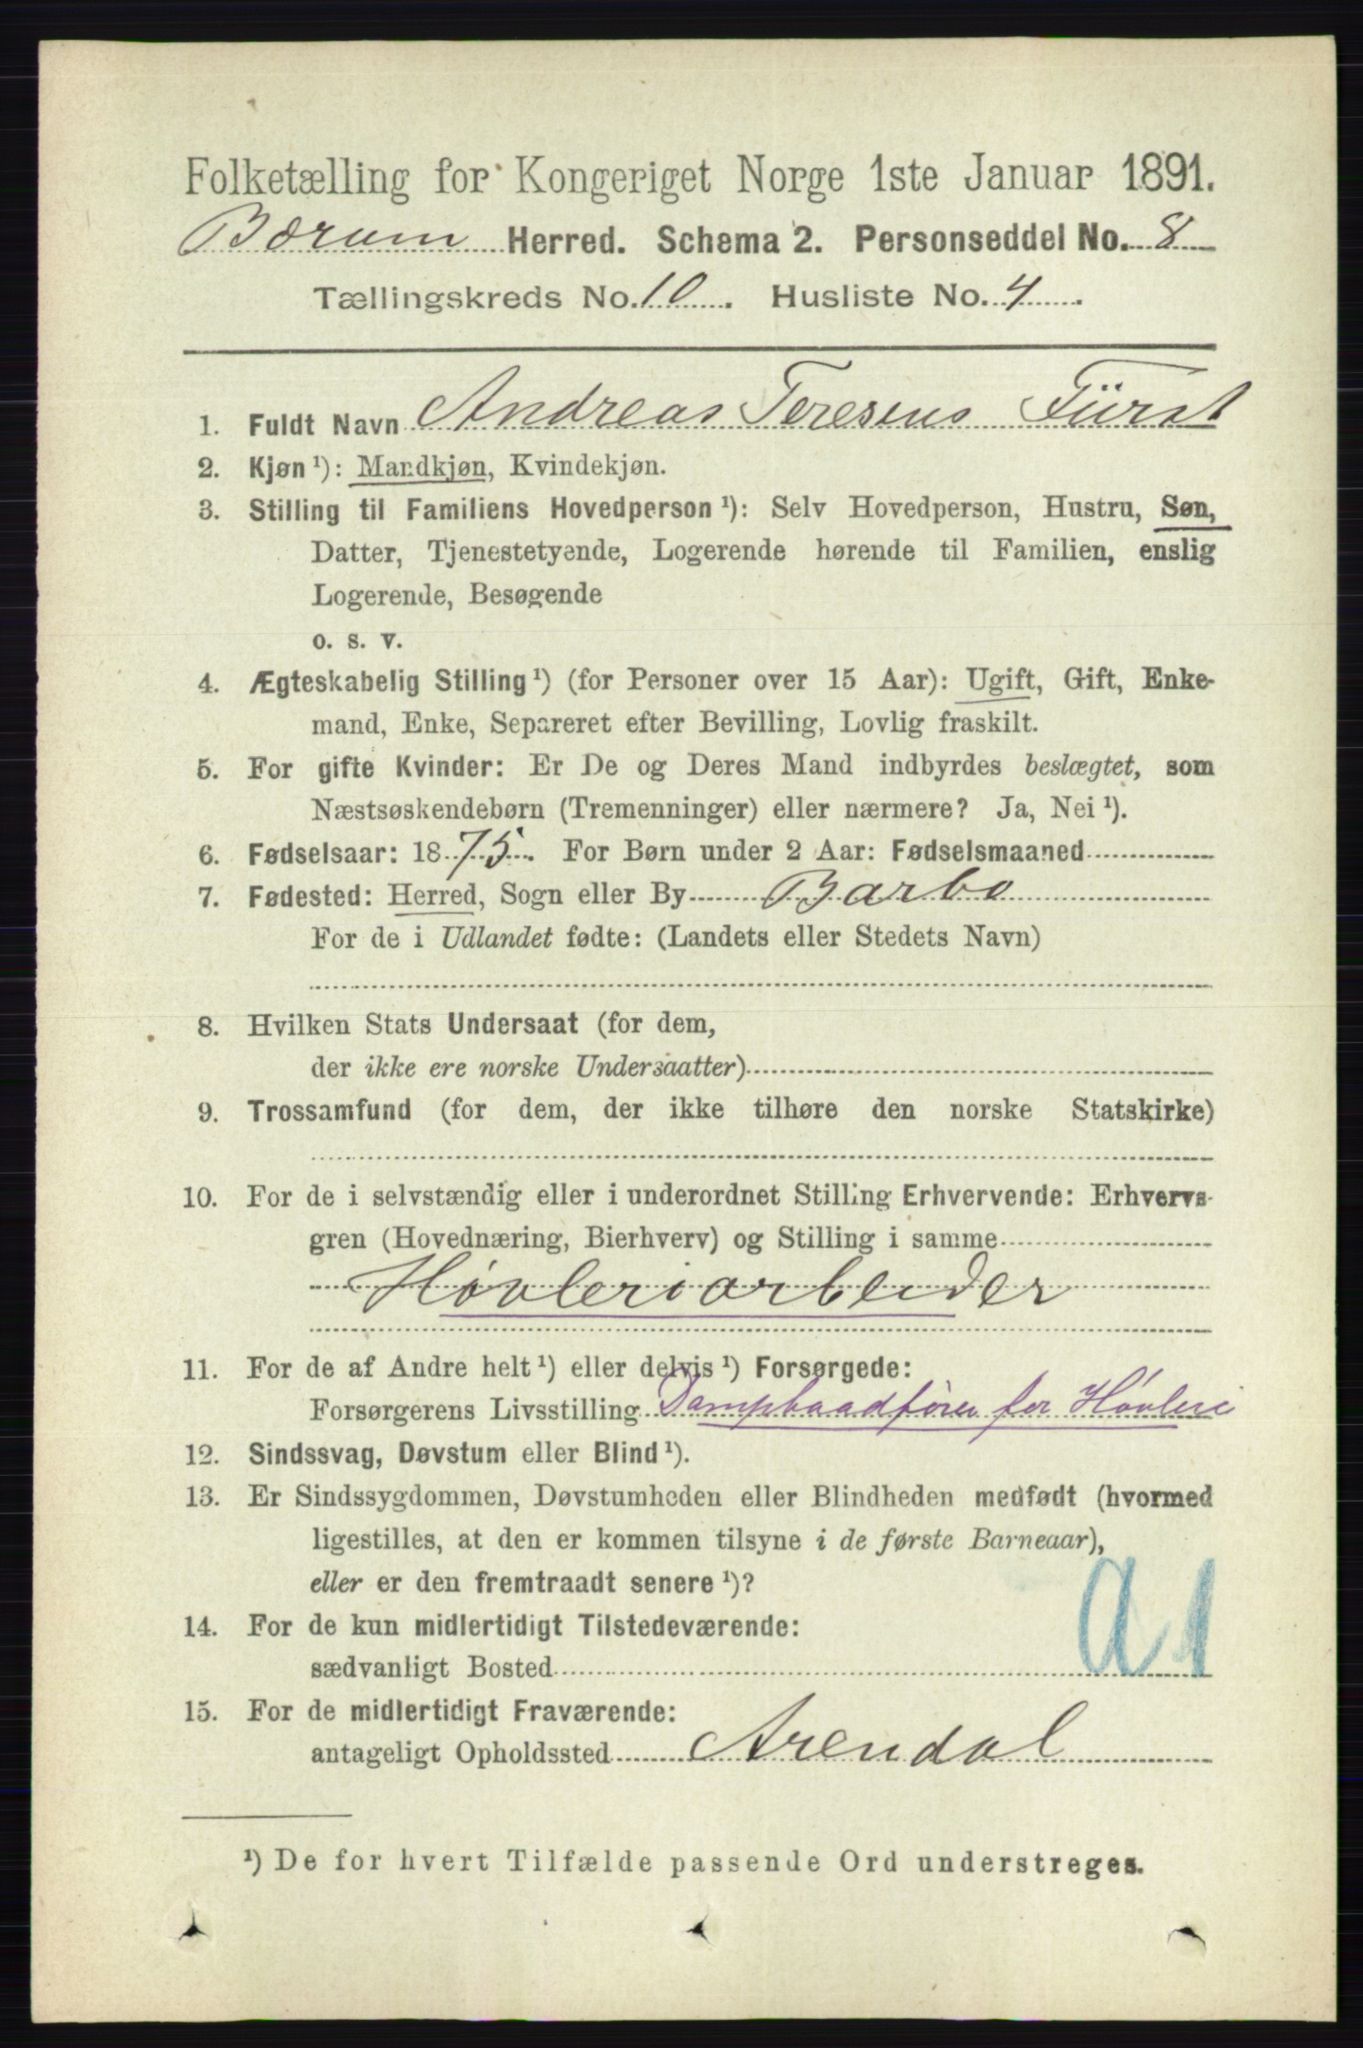 Folketælling for Kongeriget Norge 1ste Januar 1891.
Bærum Herred. Schema 2. Personseddel No. 8
Tællingskreds No. 10. Husliste No. 4.
1. Fuldt Navn Andreas Teresens Fürst
2. Kjøn ¹): Mandkjøn, Kvindekjøn.
3. Stilling til Familiens Hovedperson ¹): Selv Hovedperson, Hustru, Søn,
Datter, Tjenestetyende, Logerende hørende til Familien, enslig
Logerende, Besøgende
o. s. v.
4. Ægteskabelig Stilling ¹) (for Personer over 15 Aar): Ugift, Gift, Enke-
mand, Enke, Separeret efter Bevilling, Lovlig fraskilt.
5. For gifte Kvinder: Er De og Deres Mand indbyrdes beslægtet, som
Næstsøskendebørn (Tremenninger) eller nærmere? Ja, Nei ¹).
6. Fødselsaar: 1875. For Børn under 2 Aar: Fødselsmaaned
7. Fødested: Herred, Sogn eller By Barbo
For de i Udlandet fødte: (Landets eller Stedets Navn)
8. Hvilken Stats Undersaat (for dem,
der ikke ere norske Undersaatter)
9. Trossamfund (for dem, der ikke tilhøre den norske Statskirke)
10. For de i selvstændig eller i underordnet Stilling Erhvervende: Erhvervs-
gren (Hovednæring, Bierhverv) og Stilling i samme
Høvleriarbeider
11. For de af Andre helt ¹) eller delvis ¹) Forsørgede:
Forsørgerens Livsstilling Dampbaadfører for Høvleri
12. Sindssvag, Døvstum eller Blind ¹).
13. Er Sindssygdommen, Døvstumheden eller Blindheden medfødt (hvormed
ligestilles, at den er kommen tilsyne i de første Barneaar),
eller er den fremtraadt senere ¹)?
14. For de kun midlertidigt Tilstedeværende:
sædvanligt Bosted
a1
15. For de midlertidigt Fraværende:
antageligt Opholdssted Arendal
¹) De for hvert Tilfælde passende Ord understreges.